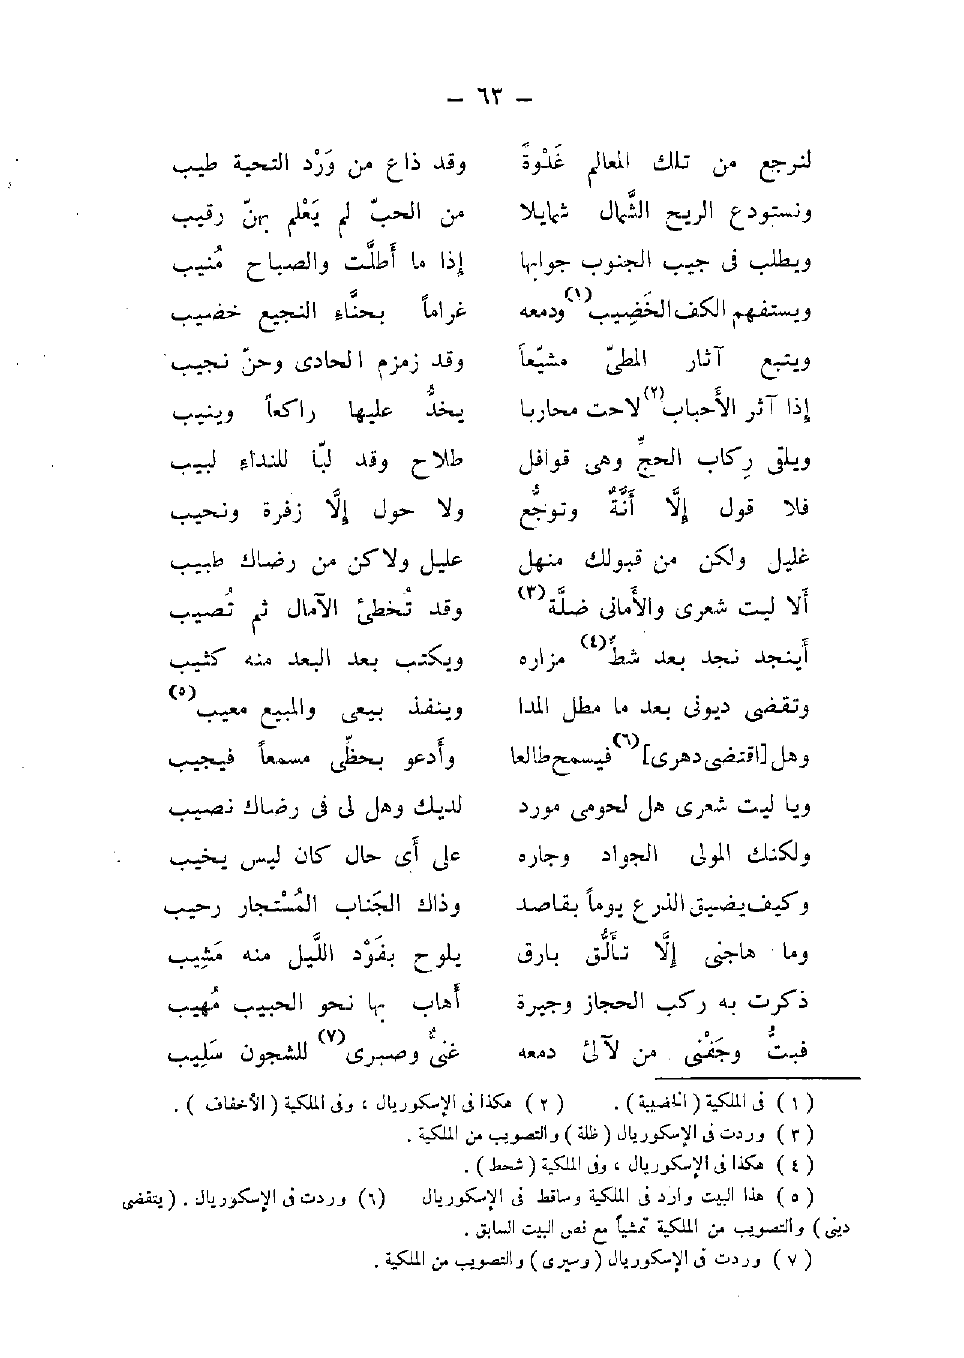 – ٦٣ –
لنرجع من تلك المعالم غَدْوةً وقد ذاع من وَرْد التحية طيب
ونستودع الريح الشَّمال شمايلا من الحبّ لم يَعْلم بهنّ رقيب
ويطلب فى جيب الجنوب جوابها إذا ما أطلَّت والصباح مُنيب
ويستفهم الكف الخَضِيب(١) ودمعه غراماً بحنَّاء النجيع خضيب
ويتبع آثار المطىّ مشيّعاً وقد زمزم الحادى وحنّ نجيب
إذا آثر الأحباب(٢) لاحت محاربا يخدُّ عليها راكعاً وينيب
ويلقى رِكاب الحجِّ وهى قوافل طلاح وقد لبّا للنداء لبيب
فلا قول إلَّا أنَّةٌ وتوجُّع ولا حول إلَّا زفرة ونحيب
غليل ولكن من قبولك منهل عليل ولاكن من رضاك طبيب
ألا ليت شعرى والأمانى ضلَّة(٣) وقد تُخطئُ الآمال ثم تُصيب
أينجد نجد بعد شطِّ(٤) مزاره ويكتب بعد البعد منه كثيب
وتقضى ديونى بعد ما مطل المدا وينفذ بيعى والمبيع معيب(٥)
وهل [اقتضى دهرى](٦) فيسمح طالعا وأدعو بحظِّى مسمعاً فيجيب
ويا ليت شعرى هل لحومى مورد لديك وهل لى فى رضاك نصيب
ولكنك المولى الجواد وجاره على أى حال كان ليس يخيب
وكيف يضيق الذرع يوماً بقاصد وذاك الجَناب المُسْتجار رحيب
وما هاجنى إلَّا تألُّق بارق يلوح بفَوْد اللَّيل منه مَشِيب
ذكرت به ركب الحجاز وجيرة أهاب بها نحو الحبيب مُهيب
فبتُّ وجَفْنى من لآلئ دمعه غنىٌّ وصبرى(٧) للشجون سَلِيب
(١) فى الملكية (الخضيبة). (٢) هكذا فى الإسكوريال، وفى الملكية (الأخفاف).
(٣) وردت فى الإسكوريال (ظلة) والتصويب من الملكية.
(٤) هكذا فى الإسكوريال، وفى الملكية (شحط).
(٥) هذا البيت وارد فى الملكية وساقط فى الإسكوريال (٦) وردت فى الإسكوريال. (يتقضى
دينى) والتصويب من الملكية تمشياً مع نص البيت السابق.
(٧) وردت فى الإسكوريال (وسيرى) والتصويب من الملكية.